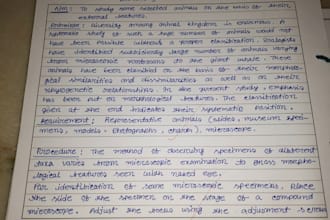 Aim : To study some selected animals on the basis of their
external features.
Principle : Diversity among animal kingdom is enormous. A
systematic study of such a large number of animals would not
have been possible without a proper classification. Zoologists
have identified surprisingly large number of animals varying
from microscopic protozoans to the giant whale. These
animals have been classified on the basis of their morpholo-
gical similarities and dissimilarities as well as on their
phylogenetic relationships. In the present study emphasis
has been put on morphological features. The classification
given at the end indicates their systematic position.
Requirement : Representative animals (slides, museum speci-
mens, models, photograph, charts), microscope.
Procedure : The method of observing specimens of different
taxa varies from microscopic examination to gross morpho-
logical features seen with naked eye.
For identification of some microscopic specimens, place
the slide of the specimen on the stage of a compound
microscope. Adjust the focus using the adjustment screw